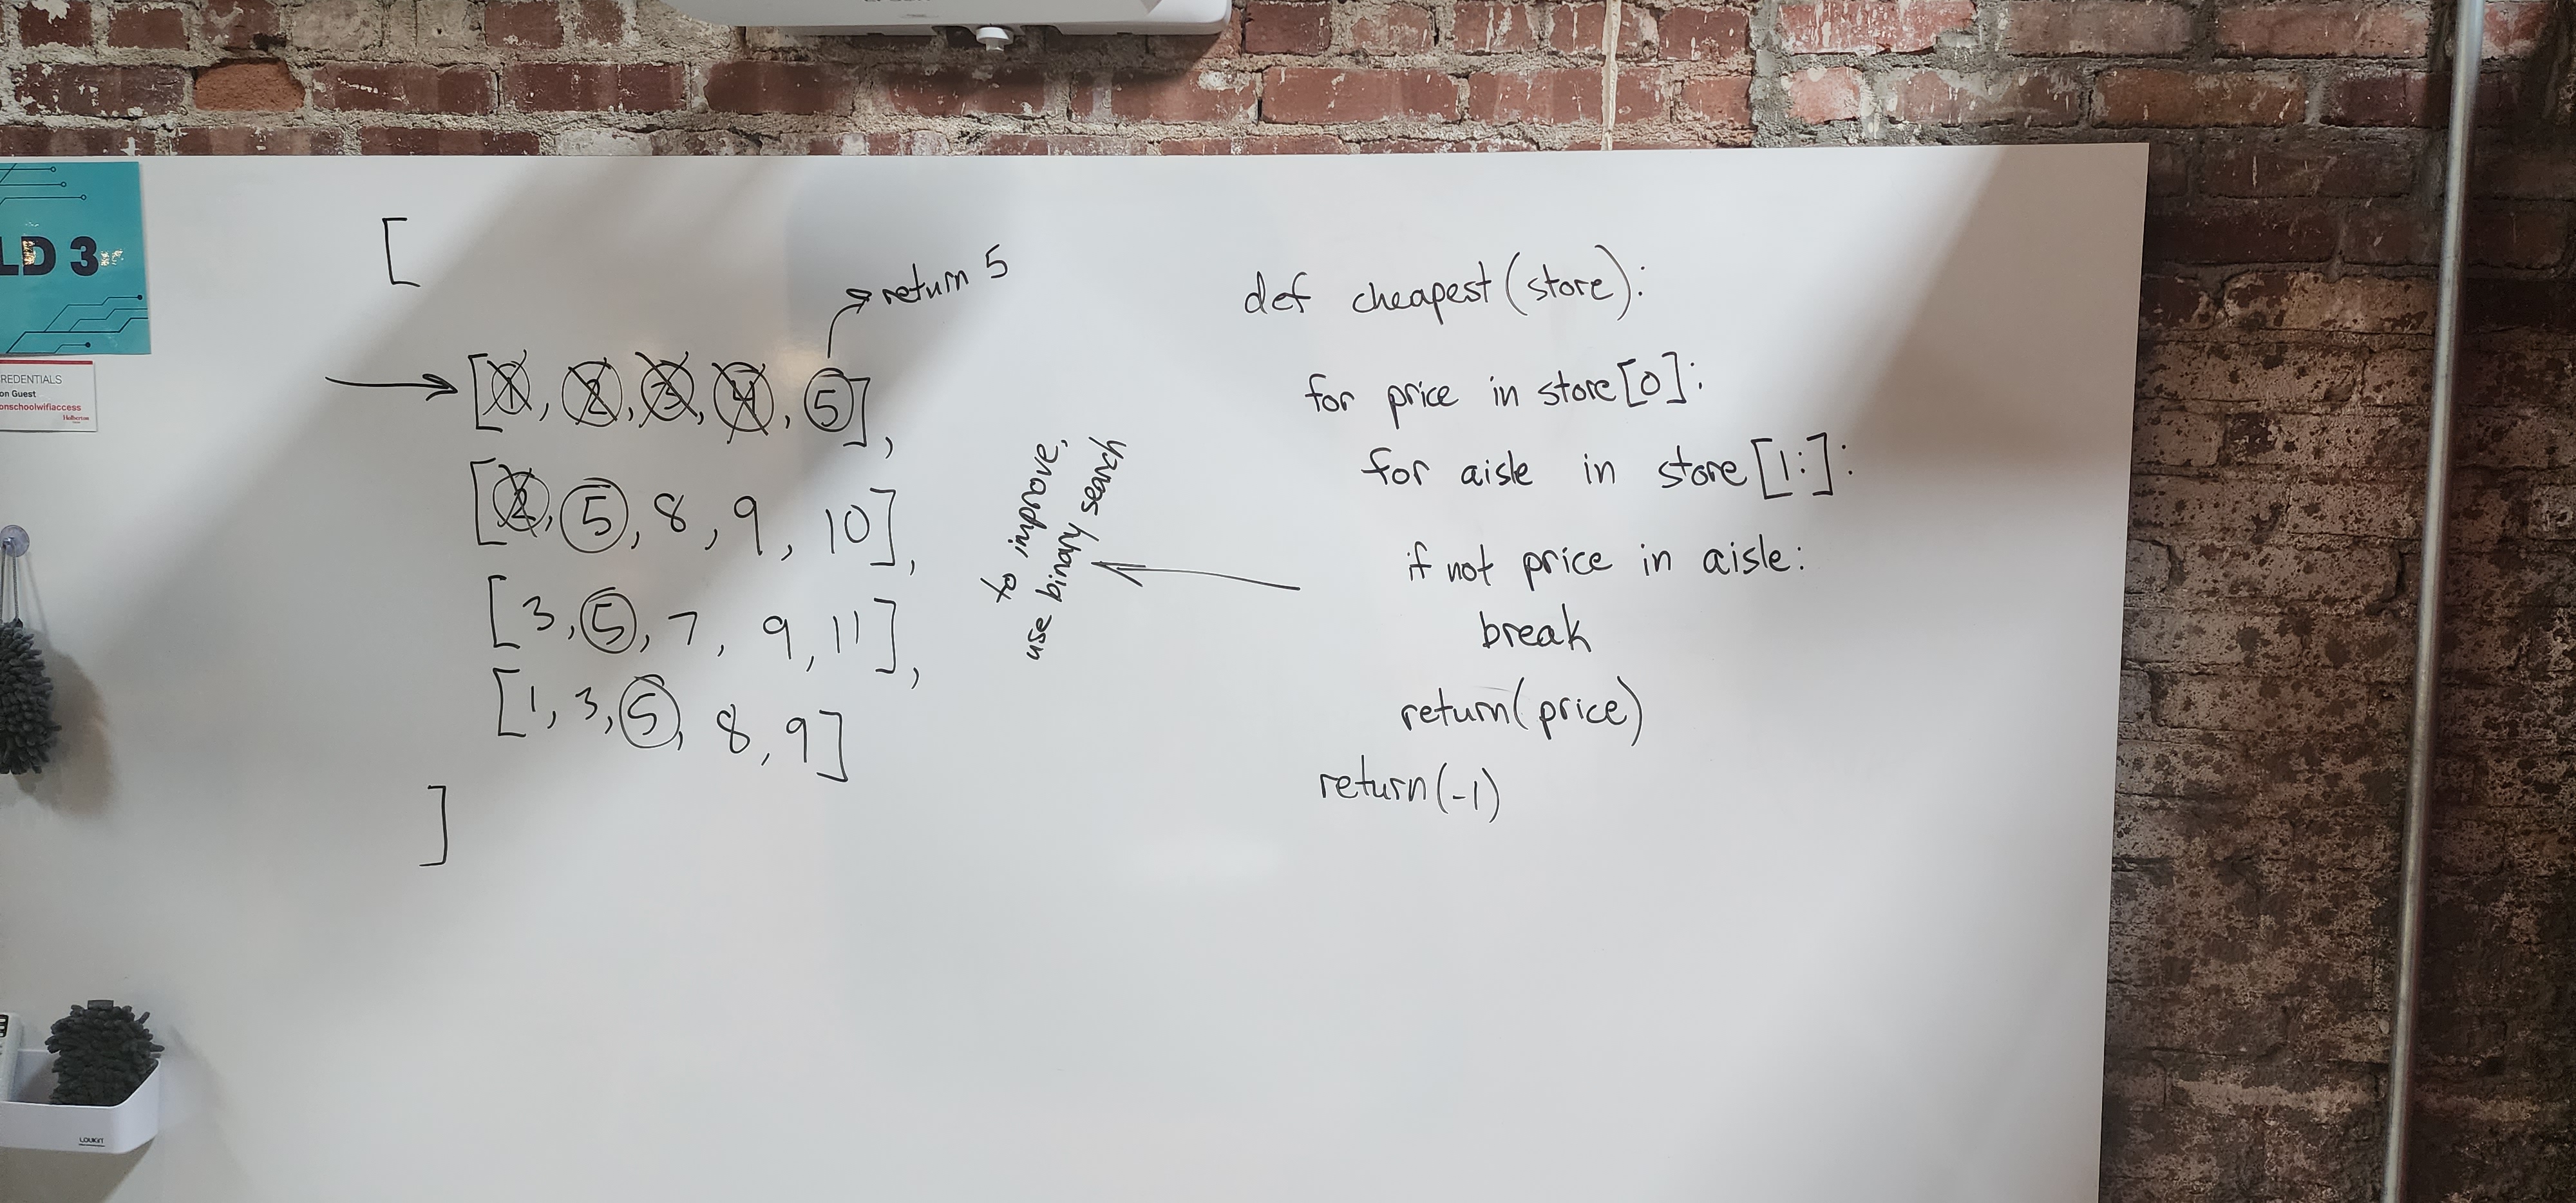 LD 3
REDENTIALS
on Guest
onschoolwifiaccess
Holberton
[
return 5
[1, 2, 3, 4, 5],
[2, 5, 8, 9, 10],
[3, 5, 7, 9, 11],
[1, 3, 5, 8, 9]
]
to improve:
use binary search
def cheapest(store):
for price in store[0]:
for aisle in store[1:]:
if not price in aisle:
break
return(price)
return(-1)
LOUKIT